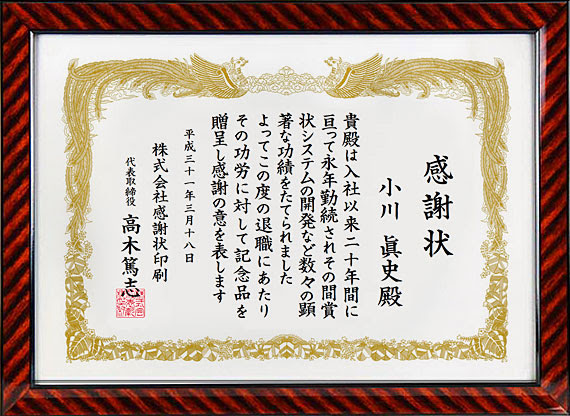 感謝状
小川 眞史殿
貴殿は入社以来二十年間に
亘って永年勤続されその間賞
状システムの開発など数々の顕
著な功績をたてられました
よってこの度の退職にあたり
その功労に対して記念品を
贈呈し感謝の意を表します
平成三十一年三月十八日
株式会社感謝状印刷
代表取締役 高木篤志